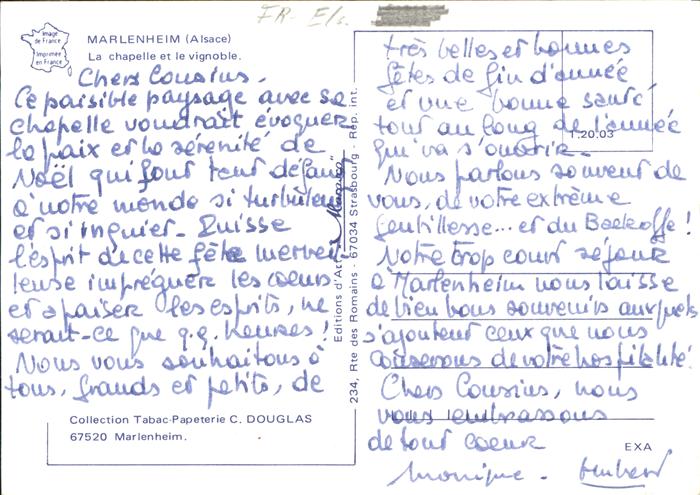 FR-E/s.
Image
de France
Imprimée
en France
MARLENHEIM (Alsace)
La chapelle et le vignoble.
Chers Cousins.
Ce paisible paysage avec sa
chapelle voudrait évoquer
la paix et la sérénité de
Noël qui font tant défaut
à notre monde si turbulent
et si inquiet. Puisse
l'esprit de cette fête merveil-
leuse imprégner les coeurs
et apaiser les esprits, ne
serait-ce que q.q. heures!
Nous vous souhaitons à
tous, grands et petits, de
Collection Tabac-Papeterie C. DOUGLAS
67520 Marlenheim.
Editions d'Art
234, Rte des Romains - 67034 Strasbourg - Rép. int.
très belles et bonnes
fêtes de fin d'année
et une bonne santé
tout au long de l'année
1.20.03
qui va s'ouvrir.
Nous parlons souvent de
vous, de votre extrême
gentillesse... et du Baekoffe!
Notre trop court séjour
à Marlenheim nous laisse
de bien bons souvenirs auxquels
s'ajoutent ceux que nous
conservons de votre hospitalité.
Chers Cousins, nous
vous embrassons
de tout coeur
EXA
Monique - Hubert